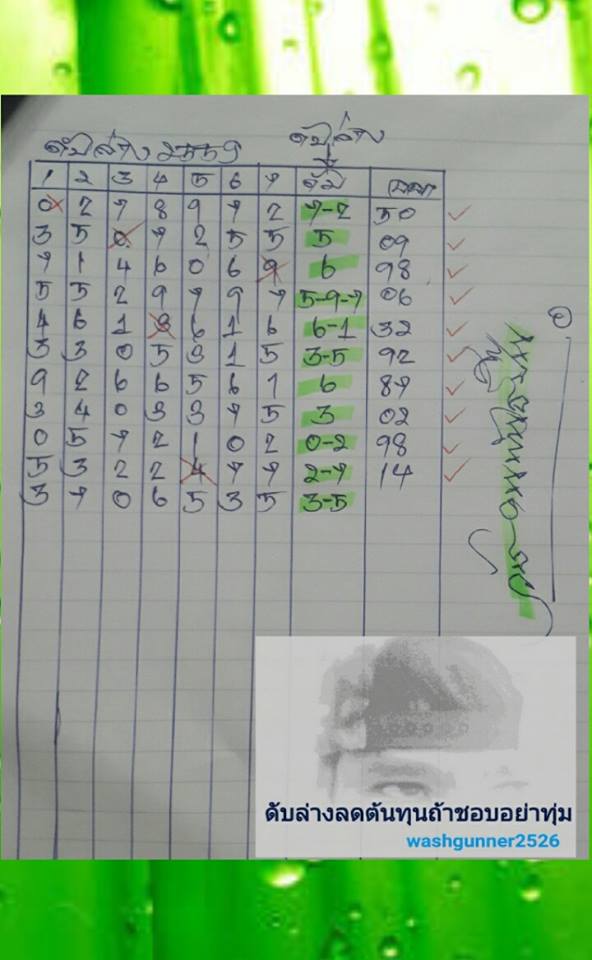 ดับล่าง 2559 ดับล่าง
1 2 3 4 5 6 7 ดับ ผล
0 2 7 8 9 7 2 7-2 50
3 5 0 7 2 5 5 5 09
7 1 4 6 0 6 9 6 98
5 5 2 9 7 9 7 5-9-7 06
4 6 1 8 6 1 6 6-1 32
3 3 0 5 3 1 5 3-5 92
9 2 6 6 5 6 1 6 87
3 4 0 3 3 7 5 3 02
0 5 7 2 1 0 2 0-2 98
5 3 2 2 4 7 7 2-7 14
3 7 0 6 5 3 5 3-5
ดับล่างลดต้นทุนถ้าชอบอย่าทุ่ม
washgunner2526